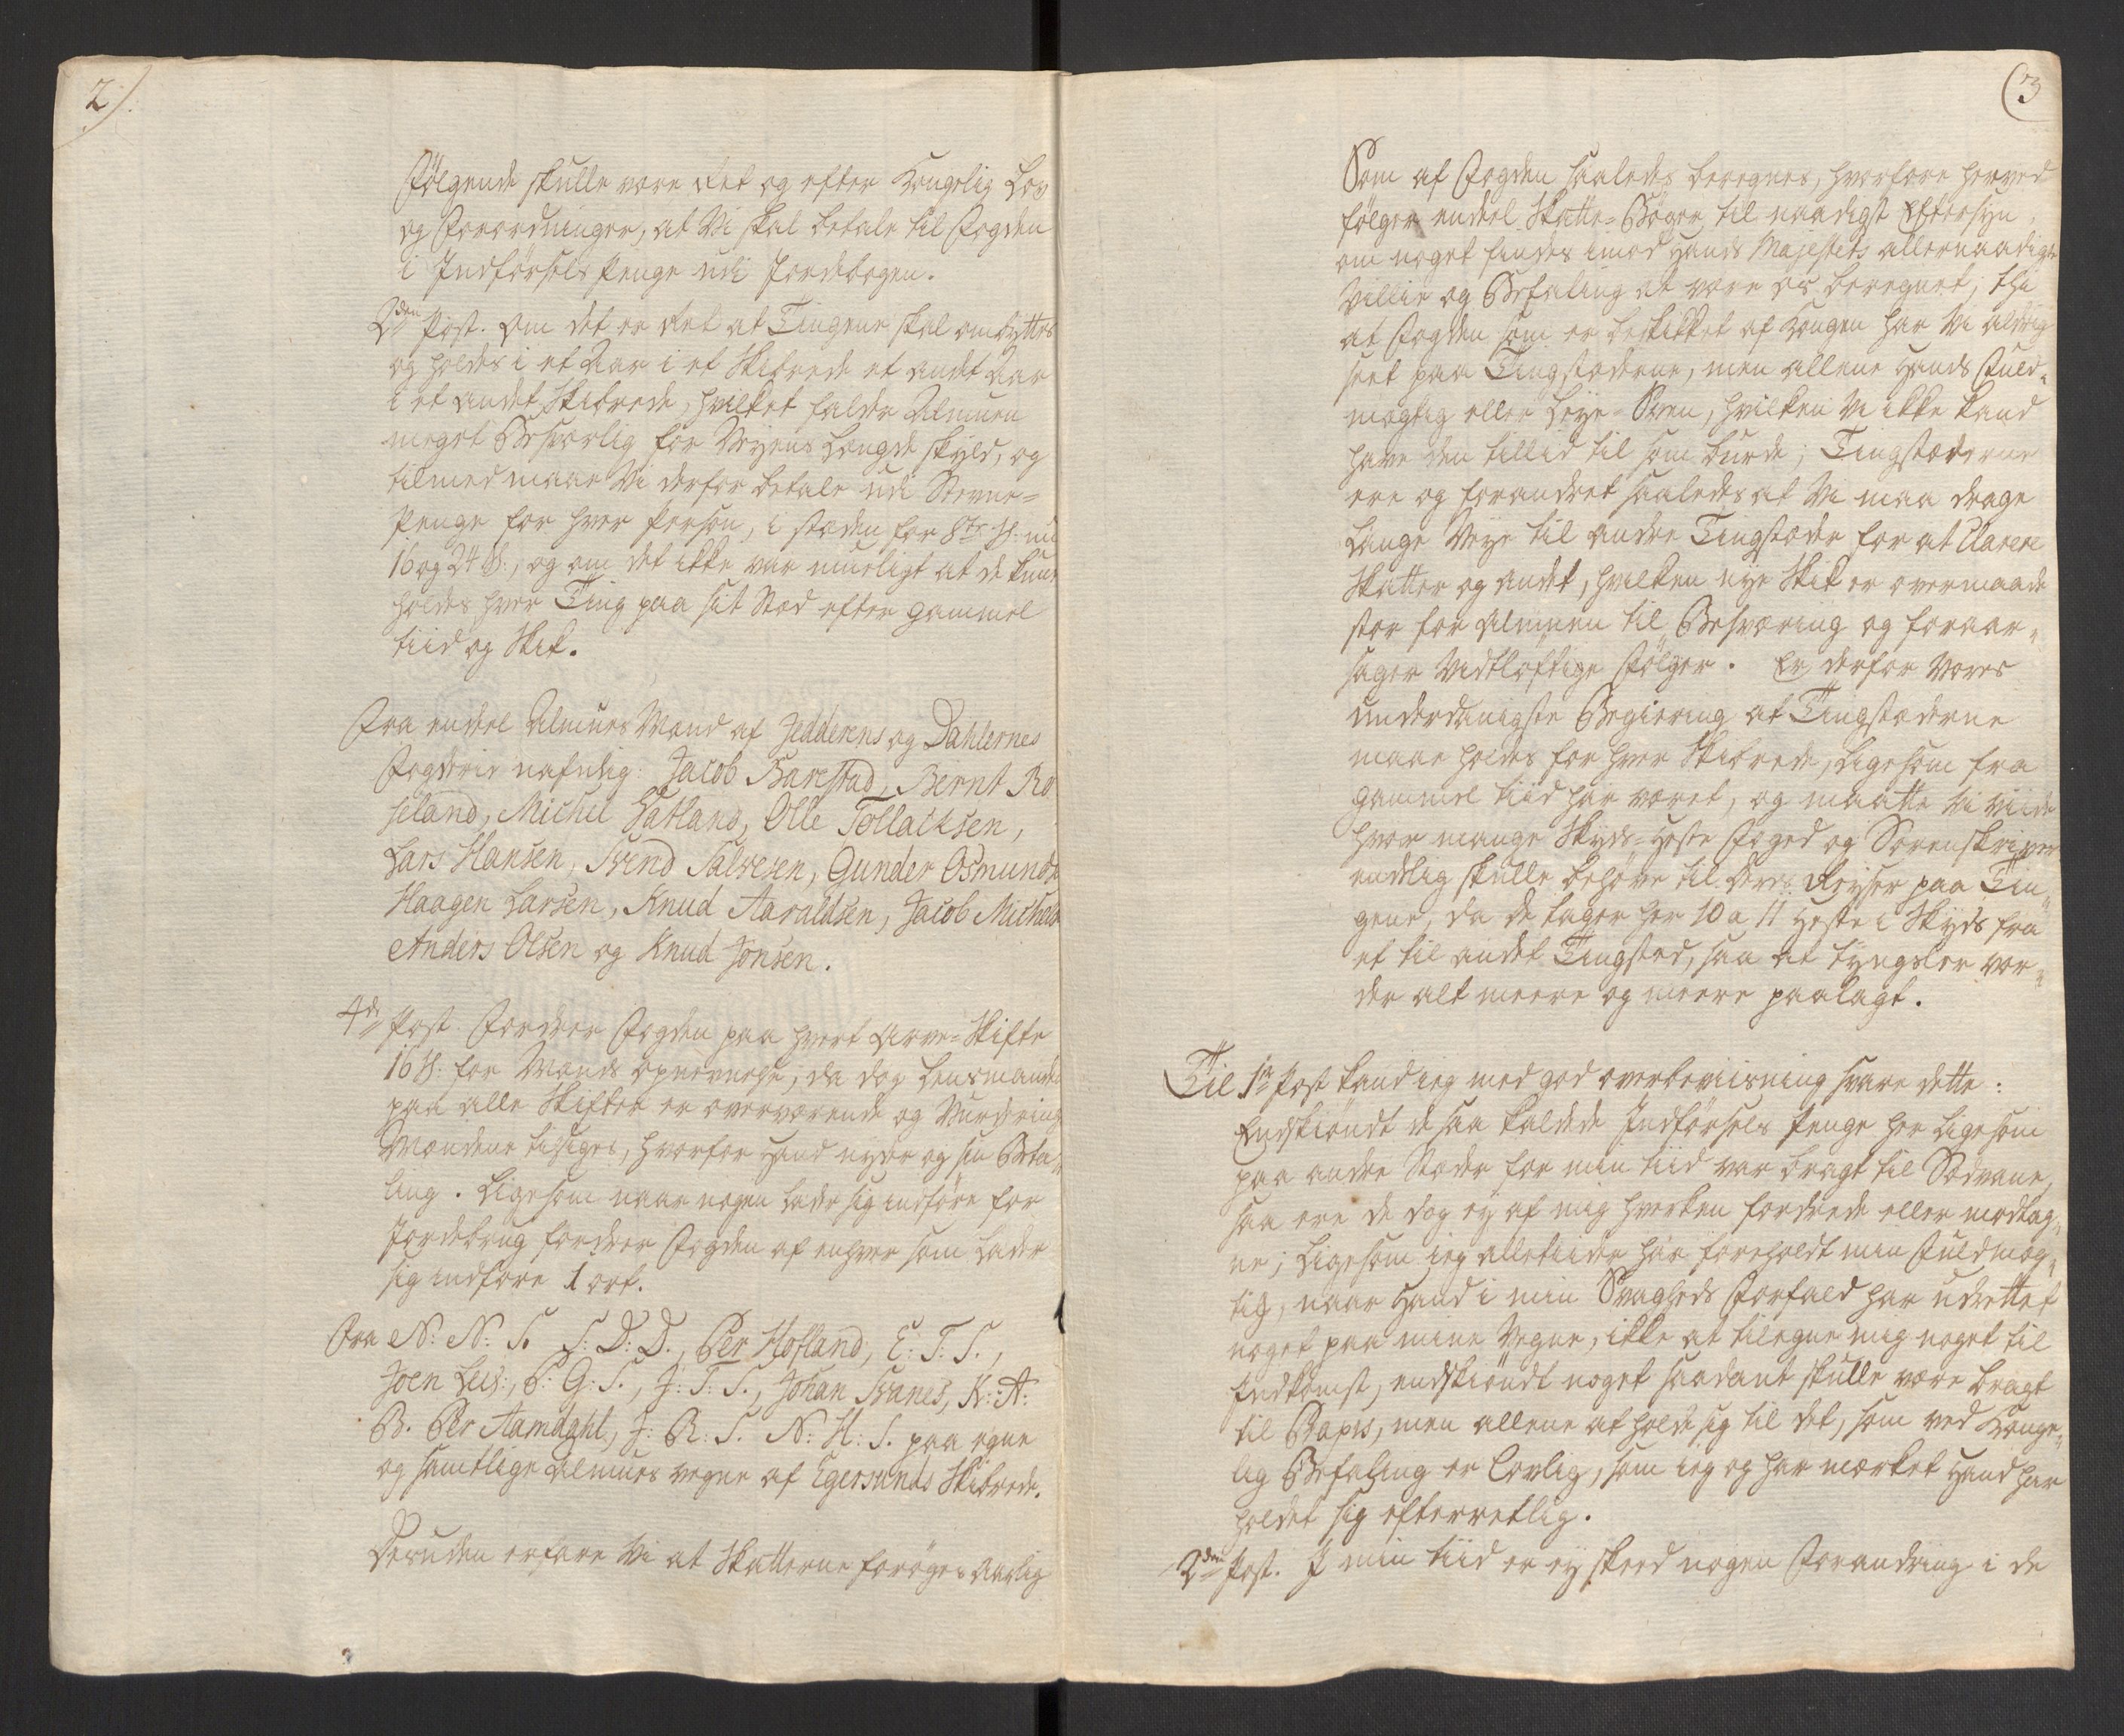 2)
Følgende skulle være Ret og efter Kongelig Lov
og Forordninger, at Vi skal betale til Fogden
i Indførsels Penge udi Jordebogen.
2den Post. Om det er Ret at Tingene skal ombyttes
og holdes i et Aar i et Skibrede et andet Aar
i et andet Skibrede, hvilket falder Almuen
meget Besværlig for Veyens Længde skyld, og
tilmed maae Vi derfor betale udi Stevne-
Penge for hver Person, i stæden for 8te s: nu
16 og 24 s:, og om det ikke var mueligt at de kunde
holdes hver Ting paa sit Stæd efter gammel
tiid og Skik.
Fra endeel Almues Mænd af Jedderens og Dahlernes
Fogderie nafnlig: Jacob Barestad, Bernt Ro
seland, Michel Hatland, Olle Tollacksen,
Lars Hansen, Svend Salvesen, Gunder Osmunds.
Haagen Larsen, Knud Aaraldsen, Jacob Michels.
Anders Olsen og Knud Jonsen.
4de Post. Fordrer Fogden paa hvert Arve-Skifte
16 s: for Mænds opnevnelse, da dog Lensmanden
paa alle Skifter er overværende og Vurderings
Mændene tilsiges, hvorfor Hand nyder og sin Beta-
ling. Ligesom naar nogen Lader sig indføre for
Jordebrug fordrer Fogden af enhver som Lader
sig indføre 1 ort.
Fra N: N: S. S: D: D., Per Hofland, E: T: S.,
Joen Leid:, S: G: S., J: T: S., Johan Svanes, K: A:
B. Per Aamdahl, J: R: S. N: H: S. paa egne
og samtlige Almues vegne af Egersunds Skibrede.
Desuden erfare Vi at Skatterne forøges Aarlig
(3
Som af Fogden saaledes beregnes, hvorfore herved
følger endeel Skatte-Bøger til naadigst Eftersyn,
om noget findes imod Hands Majestets allernaadigste
Villie og Befaling at være os beregnet; thi
at Fogden som er beskikket af Kongen har Vi aldrig
seet paa Tingstæderne, men allene Hands Fuld-
mægtig eller Leye-Sven, hvilken Vi ikke kand
have den tillid til som burde; Tingstæderne
ere og forandret saaledes at Vi maa drage
Lange Veye til andre Tingstæder for at Clarere
Skatter og andet, hvilken nye Skik er overmaade
stor for Almuen til Besværing og foraar-
sager Vidtløftige Følger. Er derfor Vores
underdanigste Begiering at Tingstæderne
maae holdes for hver Skibrede, Ligesom fra
gammel tiid har været, og maatte Vi Viide
hvor mange Skyds-Heste Foged og Sorenskriver
endelig skulle behøve til deres Reyser paa Tin-
gene, da de tager her 10 a 11 Heste i Skyds fra
et til andet Tingsted, saa at tyngsler vor-
der alt meere og meere paalagt.
Til 1ste Post kand ieg med god overbeviisning svare dette:
Endskiøndt de saa kaldede Indførsels Penge her Ligesom
paa andre Stæder for min tiid var bragt til Sædvane,
saa ere de dog ey af mig hverken fordrede eller modtag-
ne; Ligesom ieg alletiider har foreholdt min Fuldmæg-
tig, naar Hand i min Svagheds Forfald har udrettet
noget paa mine Vegne, ikke at tilegne mig noget til
Indkomst, endskiøndt noget saadant skulle være bragt
til Papir, men allene at holde sig til det, som ved Konge-
lig Befaling er Lovlig, som ieg og har mærket Hand har
holdet sig efterretlig.
2den Post. I min tiid er ey skeed nogen Forandring i de